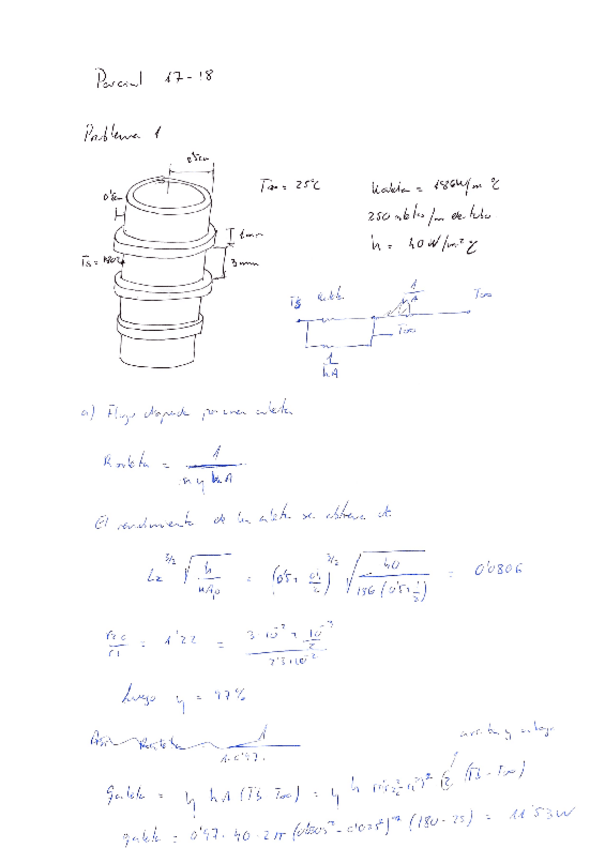 Parcial 17-18
Problema 1
2'5cm
T∞ = 25°C
k aleta = 186W/m °C
0'5
250 aletas/m de tubo
1mm
h = 40 W/m² °C
Ts = 180°
3mm
Ts
T∞
T∞
1/hA
a) Flujo disipado por una aleta
R aleta = 1 / n η h A
El rendimiento de la aleta se obtiene de
Lc^3/2 √ h/kAp = (0'5 + 0'1/2)^3/2 √ 40/186 (0'5 + 1/2) = 0'0806
r2c/r1 = 1'22 = 3·10⁻² + 10⁻³/2 / 2'5·10⁻²
Luego η = 97%
arriba y abajo
q aleta = η h A (Ts - T∞) = η h (2) (Ts - T∞)
q aleta = 0'97 · 40 · 2π (0'0305² - 0'025²) (180 - 25) = 11'53W